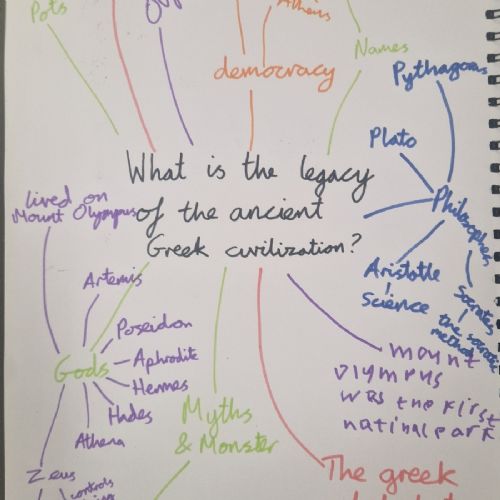 Pots
Athens
democracy
Names
Pythagoras
Plato
Philosophers
Aristotle
Science
Socrates
the socratic
method
What is the legacy
of the ancient
Greek civilization?
lived on
Mount Olympus
Artemis
Poseidon
Aphrodite
Hermes
Hades
Athena
Gods
Zeus
controls
Myths
& Monster
mount
olympus
was the first
natinal park
The greek